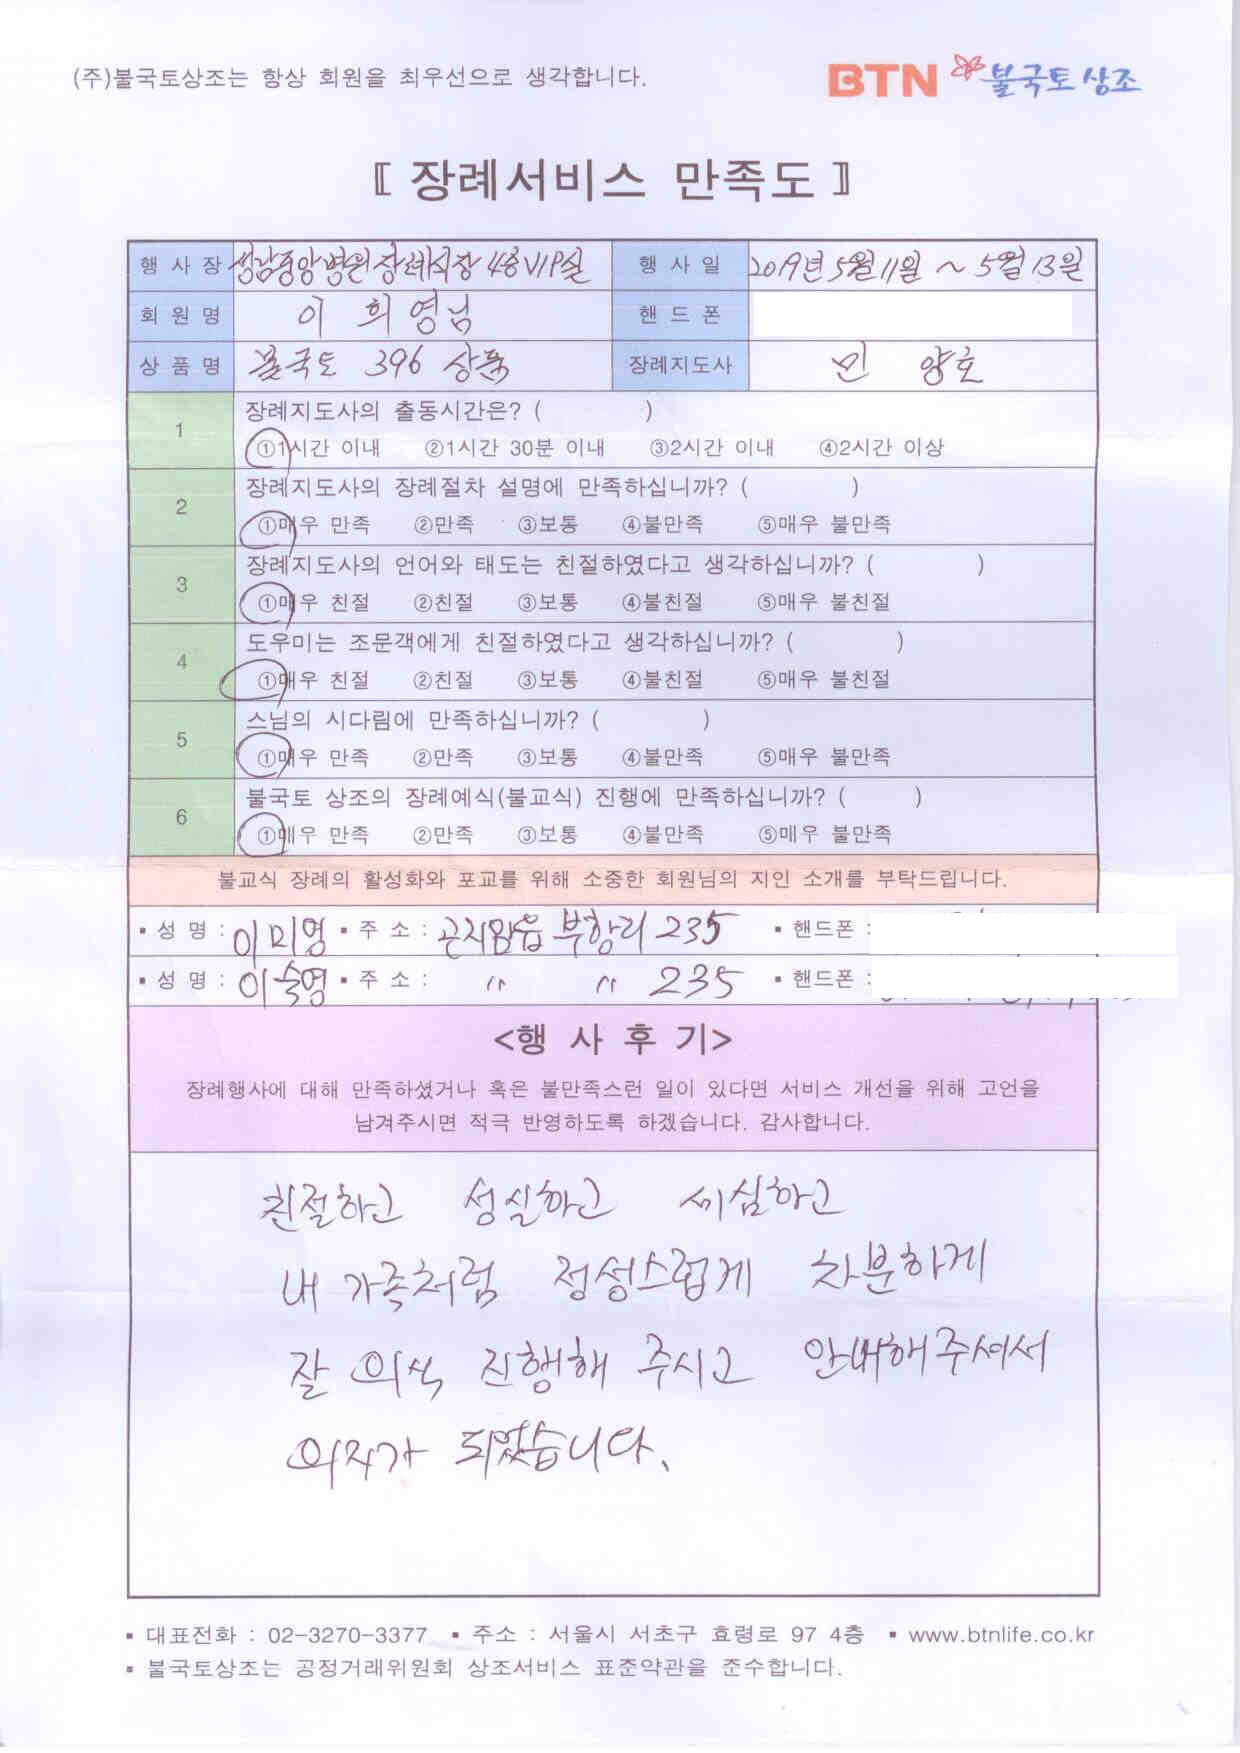 (주)불국토상조는 항상 회원을 최우선으로 생각합니다.
BTN 불국토상조
〚 장례서비스 만족도 〛
행 사 장 성남중앙병원장례식장 4층VIP실 행 사 일 2019년 5월 11일 ~ 5월 13일
회 원 명 이 희 영님 핸 드 폰
상 품 명 불국토 396 상품 장례지도사 민 양호
1 장례지도사의 출동시간은? ( )
①1시간 이내 ②1시간 30분 이내 ③2시간 이내 ④2시간 이상
2 장례지도사의 장례절차 설명에 만족하십니까? ( )
①매우 만족 ②만족 ③보통 ④불만족 ⑤매우 불만족
3 장례지도사의 언어와 태도는 친절하였다고 생각하십니까? ( )
①매우 친절 ②친절 ③보통 ④불친절 ⑤매우 불친절
4 도우미는 조문객에게 친절하였다고 생각하십니까? ( )
①매우 친절 ②친절 ③보통 ④불친절 ⑤매우 불친절
5 스님의 시다림에 만족하십니까? ( )
①매우 만족 ②만족 ③보통 ④불만족 ⑤매우 불만족
6 불국토 상조의 장례예식(불교식) 진행에 만족하십니까? ( )
①매우 만족 ②만족 ③보통 ④불만족 ⑤매우 불만족
불교식 장례의 활성화와 포교를 위해 소중한 회원님의 지인 소개를 부탁드립니다.
▪ 성 명 : 이미영 ▪ 주 소 : 곤지암읍 부항리 235 ▪ 핸드폰 :
▪ 성 명 : 이숙영 ▪ 주 소 : 〃 〃 235 ▪ 핸드폰 :
<행 사 후 기>
장례행사에 대해 만족하셨거나 혹은 불만족스런 일이 있다면 서비스 개선을 위해 고언을
남겨주시면 적극 반영하도록 하겠습니다. 감사합니다.
친절하고 성실하고 세심하고
내 가족처럼 정성스럽게 차분하게
잘 의식 진행해 주시고 안내해주셔서
의지가 되었습니다.
▪ 대표전화 : 02-3270-3377 ▪ 주소 : 서울시 서초구 효령로 97 4층 ▪ www.btnlife.co.kr
▪ 불국토상조는 공정거래위원회 상조서비스 표준약관을 준수합니다.